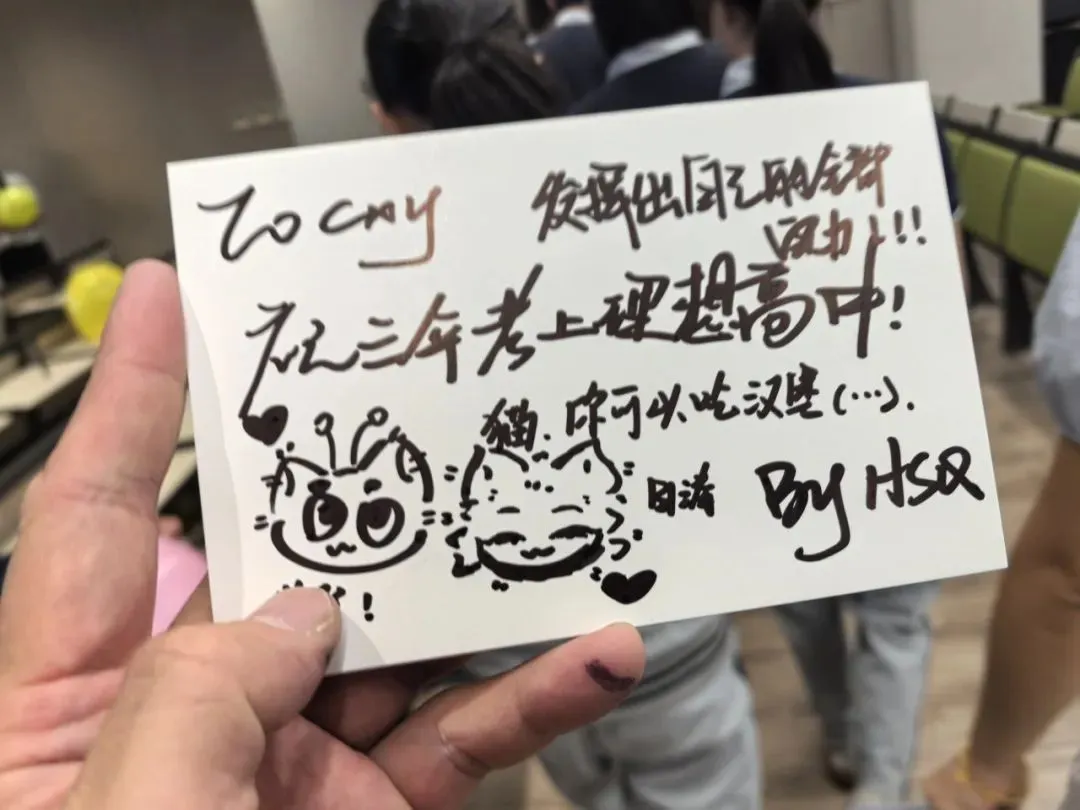 To CMY
发挥出自己的全部
实力!!!
祝三年考上理想高中!
猫.你可以吃汉堡(…).
By HSQ
!